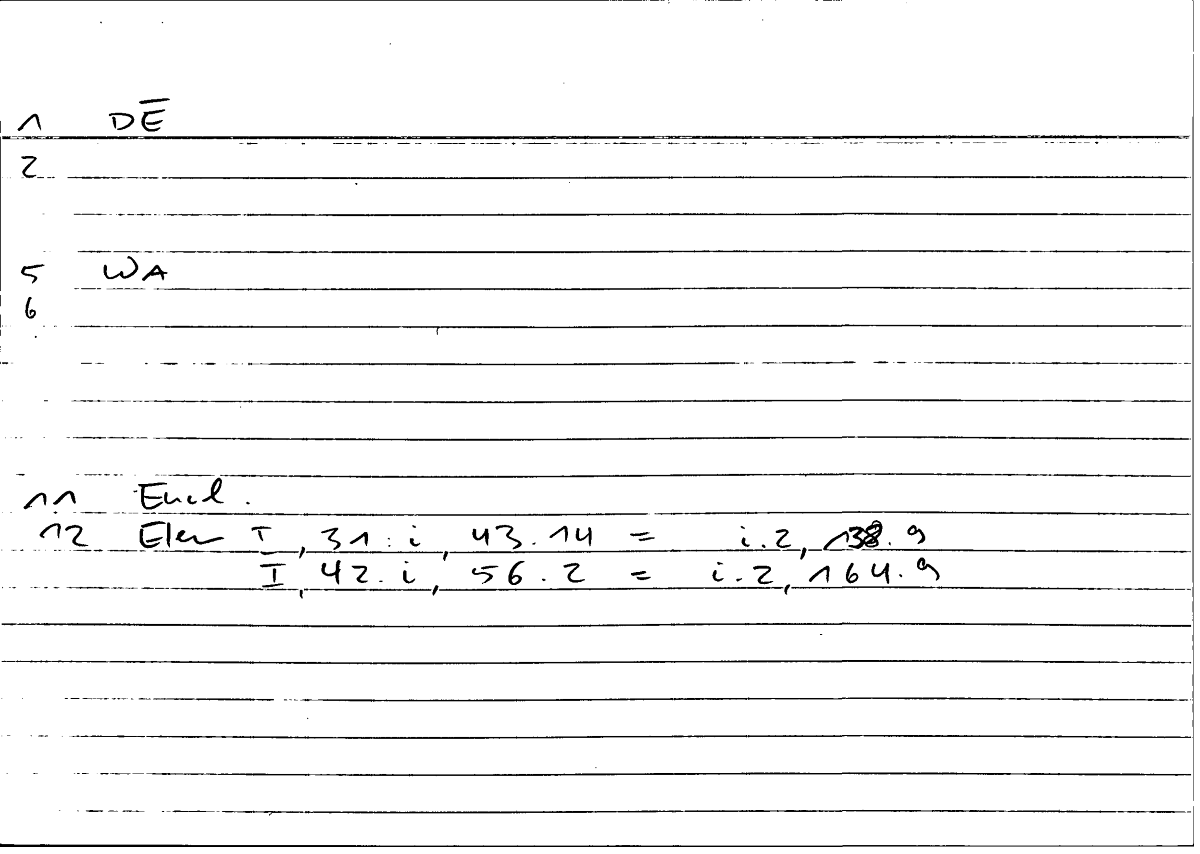 1 DĒ
2
5 WA
6
11 Eucl.
12 Elem I, 31. i, 43.14 = i.2, 138.9
I, 42. i, 56.2 = i.2, 164.9